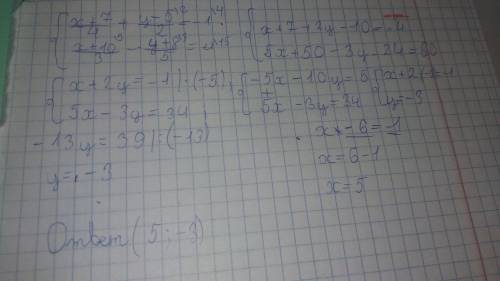 { x+7/4 + y-5/2 = -1 |·4
{ x+10/3 - y+8/5 = 4 |·15
{ x+7+2y-10=-4
{ 5x+50-3y-24=60
{ x+2y=-1 |·(-5)
{ 5x-3y=34
{ -5x-10y=5
+
{ 5x-3y=34
-13y=39 |:(-13)
y=-3
{ x+2(-3)=-1
{ y=-3
x-6=-1
x=6-1
x=5
Ответ (5;-3)